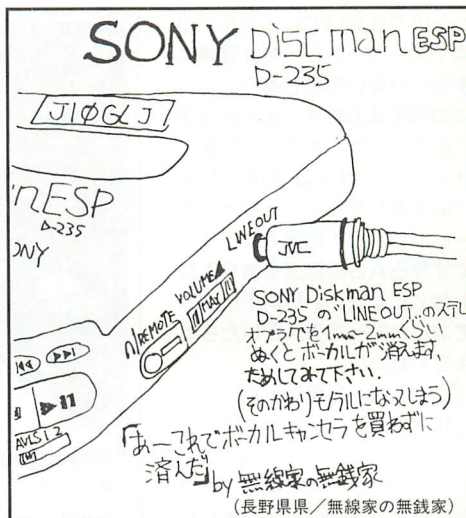 SONY Discman ESP
D-235
J1ØGLJ
nESP
D-235
ONY
LINE OUT
JVC
VOLUME
MAX
∩/REMOTE
AVLS 1 2
SONY Diskman ESP
D-235 の"LINE OUT"のステレ
オプラグを1mm~2mmくらい
ぬくとボーカルが消えます。
ためしてみて下さい.
(そのかわりモラルになってしまう)
「あーこれでボーカルキャンセラを買わずに
済んだ」by 無線家の無銭家
(長野県県/無線家の無銭家)